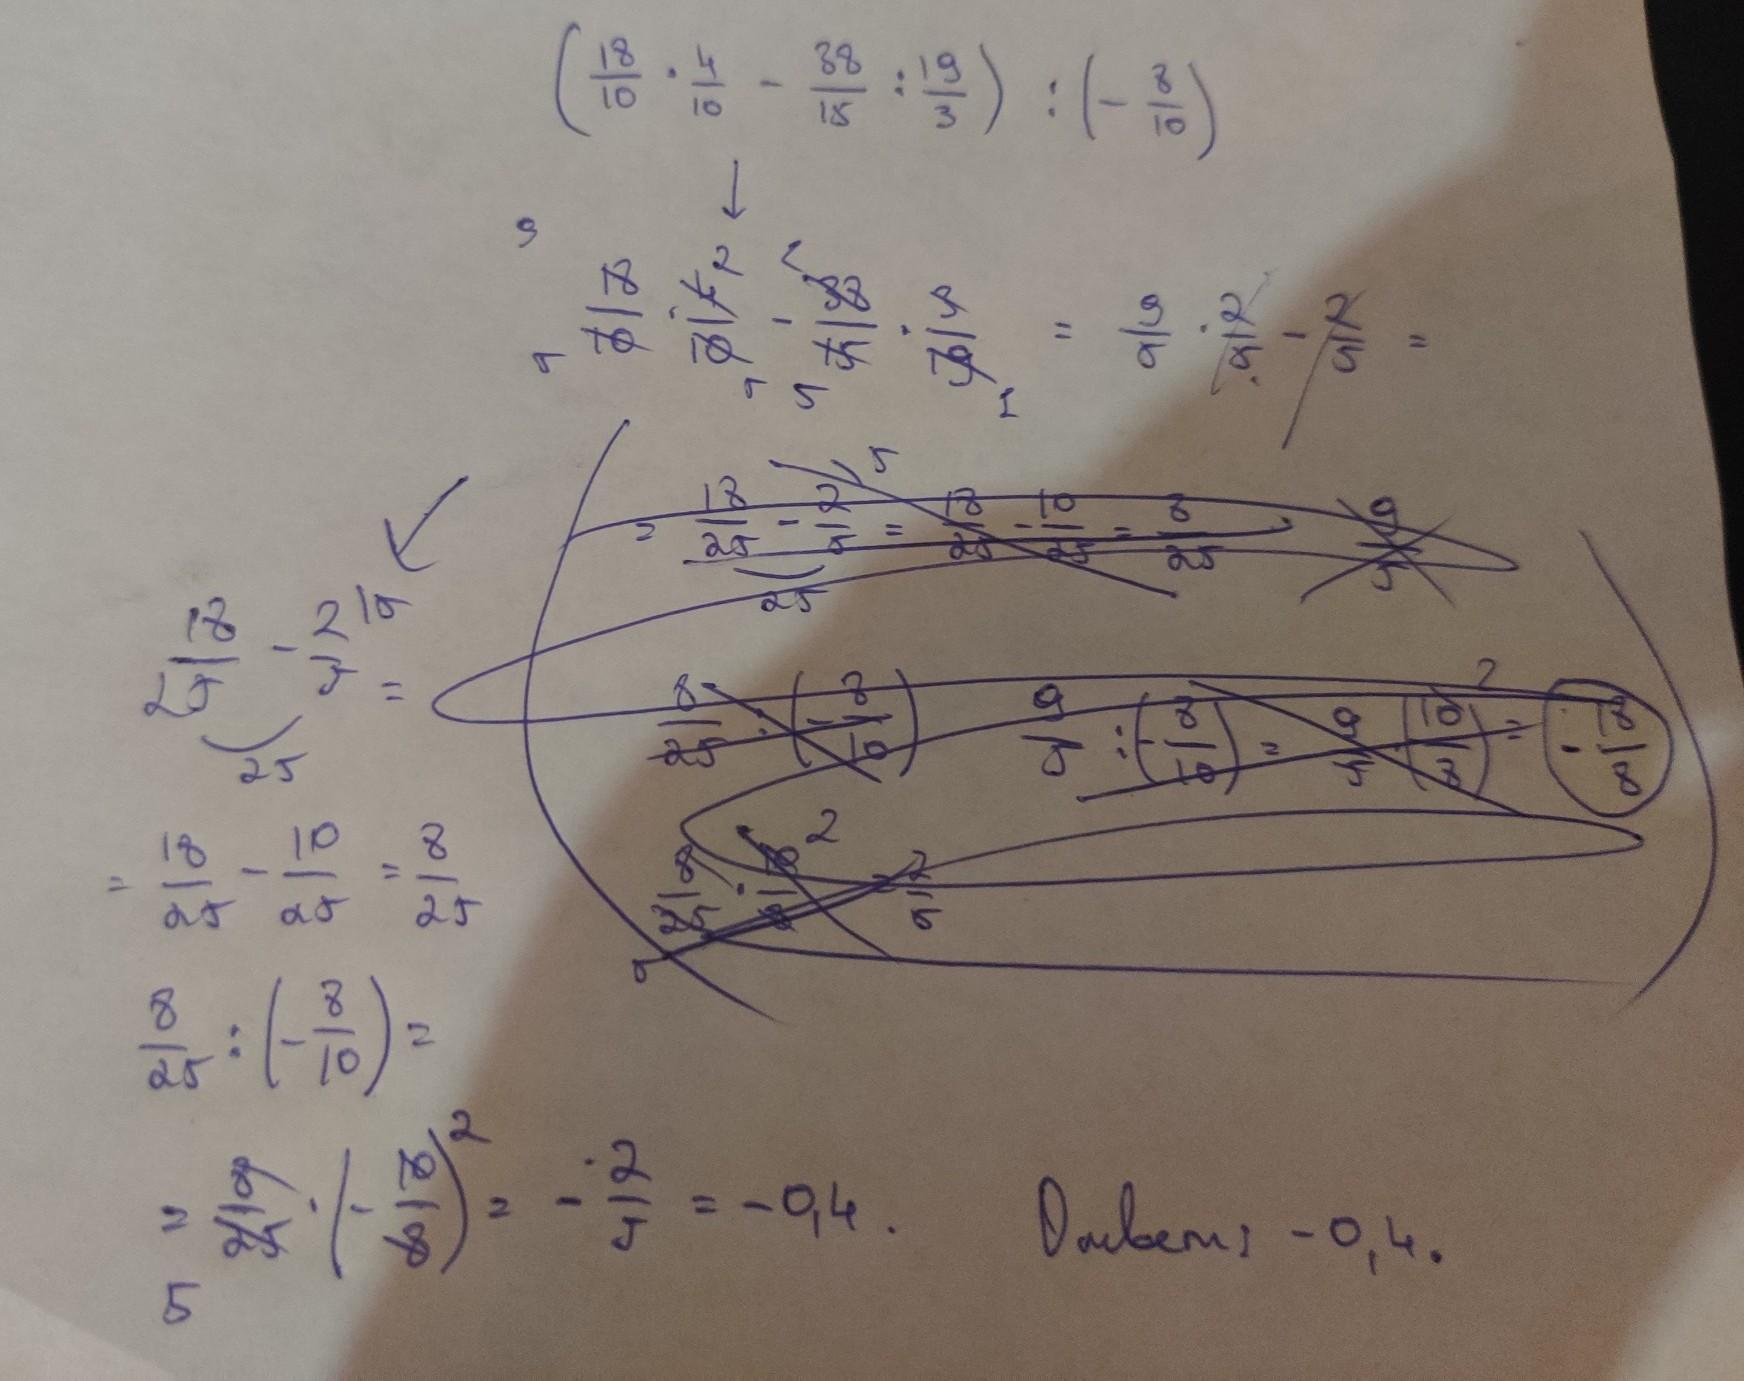 (18/10 · 4/10 - 38/15 : 19/3) : (- 8/10)
18/10 · 4/10 - 38/15 · 3/19 = 9/5 · 2/5 - 2/5 =
= 18/25 - 2/5 = 18/25 - 10/25 = 8/25
9/5
25
18/25 - 2/5 =
25
8/25 : (- 8/10)
9/5 : (- 8/10) = 9/5 (10/8) = - 18/8
8/25 · 10/8 = 2/5
= 18/25 - 10/25 = 8/25
8/25 : (- 8/10) =
= 8/25 · (- 10/8) = - 2/5 = -0,4. Ответ: -0,4.